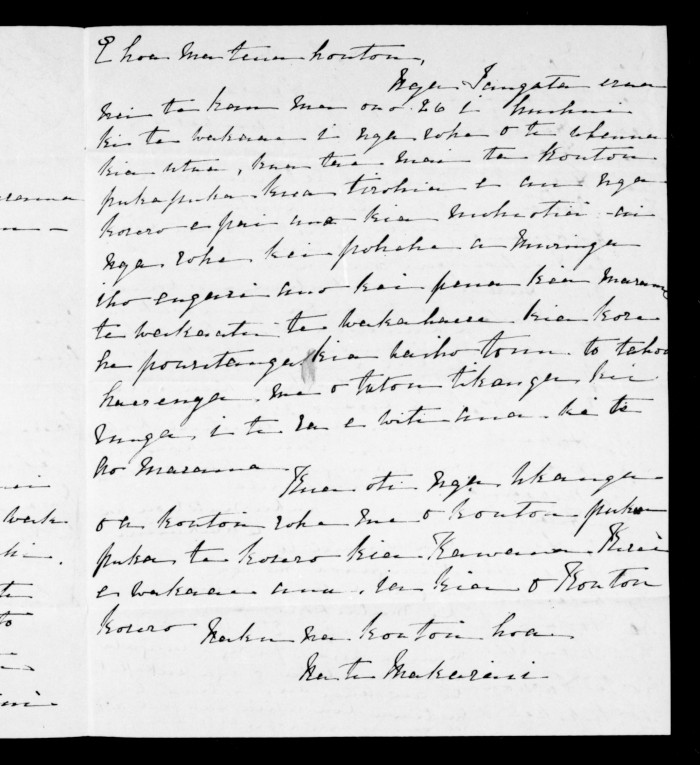 E hoa ma tena koutou,
Nga Tangata e rua
nei te kau ma ono. 26 i huihui
ki te wakaae i nga rohe o te whenua
kia utua, kua tae mai ta Koutou
pukapuka kua tirohia e au nga
korero e pai ana kia mohiotia ai
nga rohe kei pohehe a muringa
iho engari ano kei pena kia Marama
te wakaatu te wakahaere kia kore
he pouritanga kia waiho tonu to tatou
haerenga me o tatou tikanga ki
runga i te ra e witi ana ki te
Ao Marama
Kua oti nga tikanga
o a koutou rohe me o koutou puka
puka te korero kia Kawana Kerei
e wakaae ana ia kia o Koutou
Korero
Naku na koutou hoa
Na te Makarini
wak
to